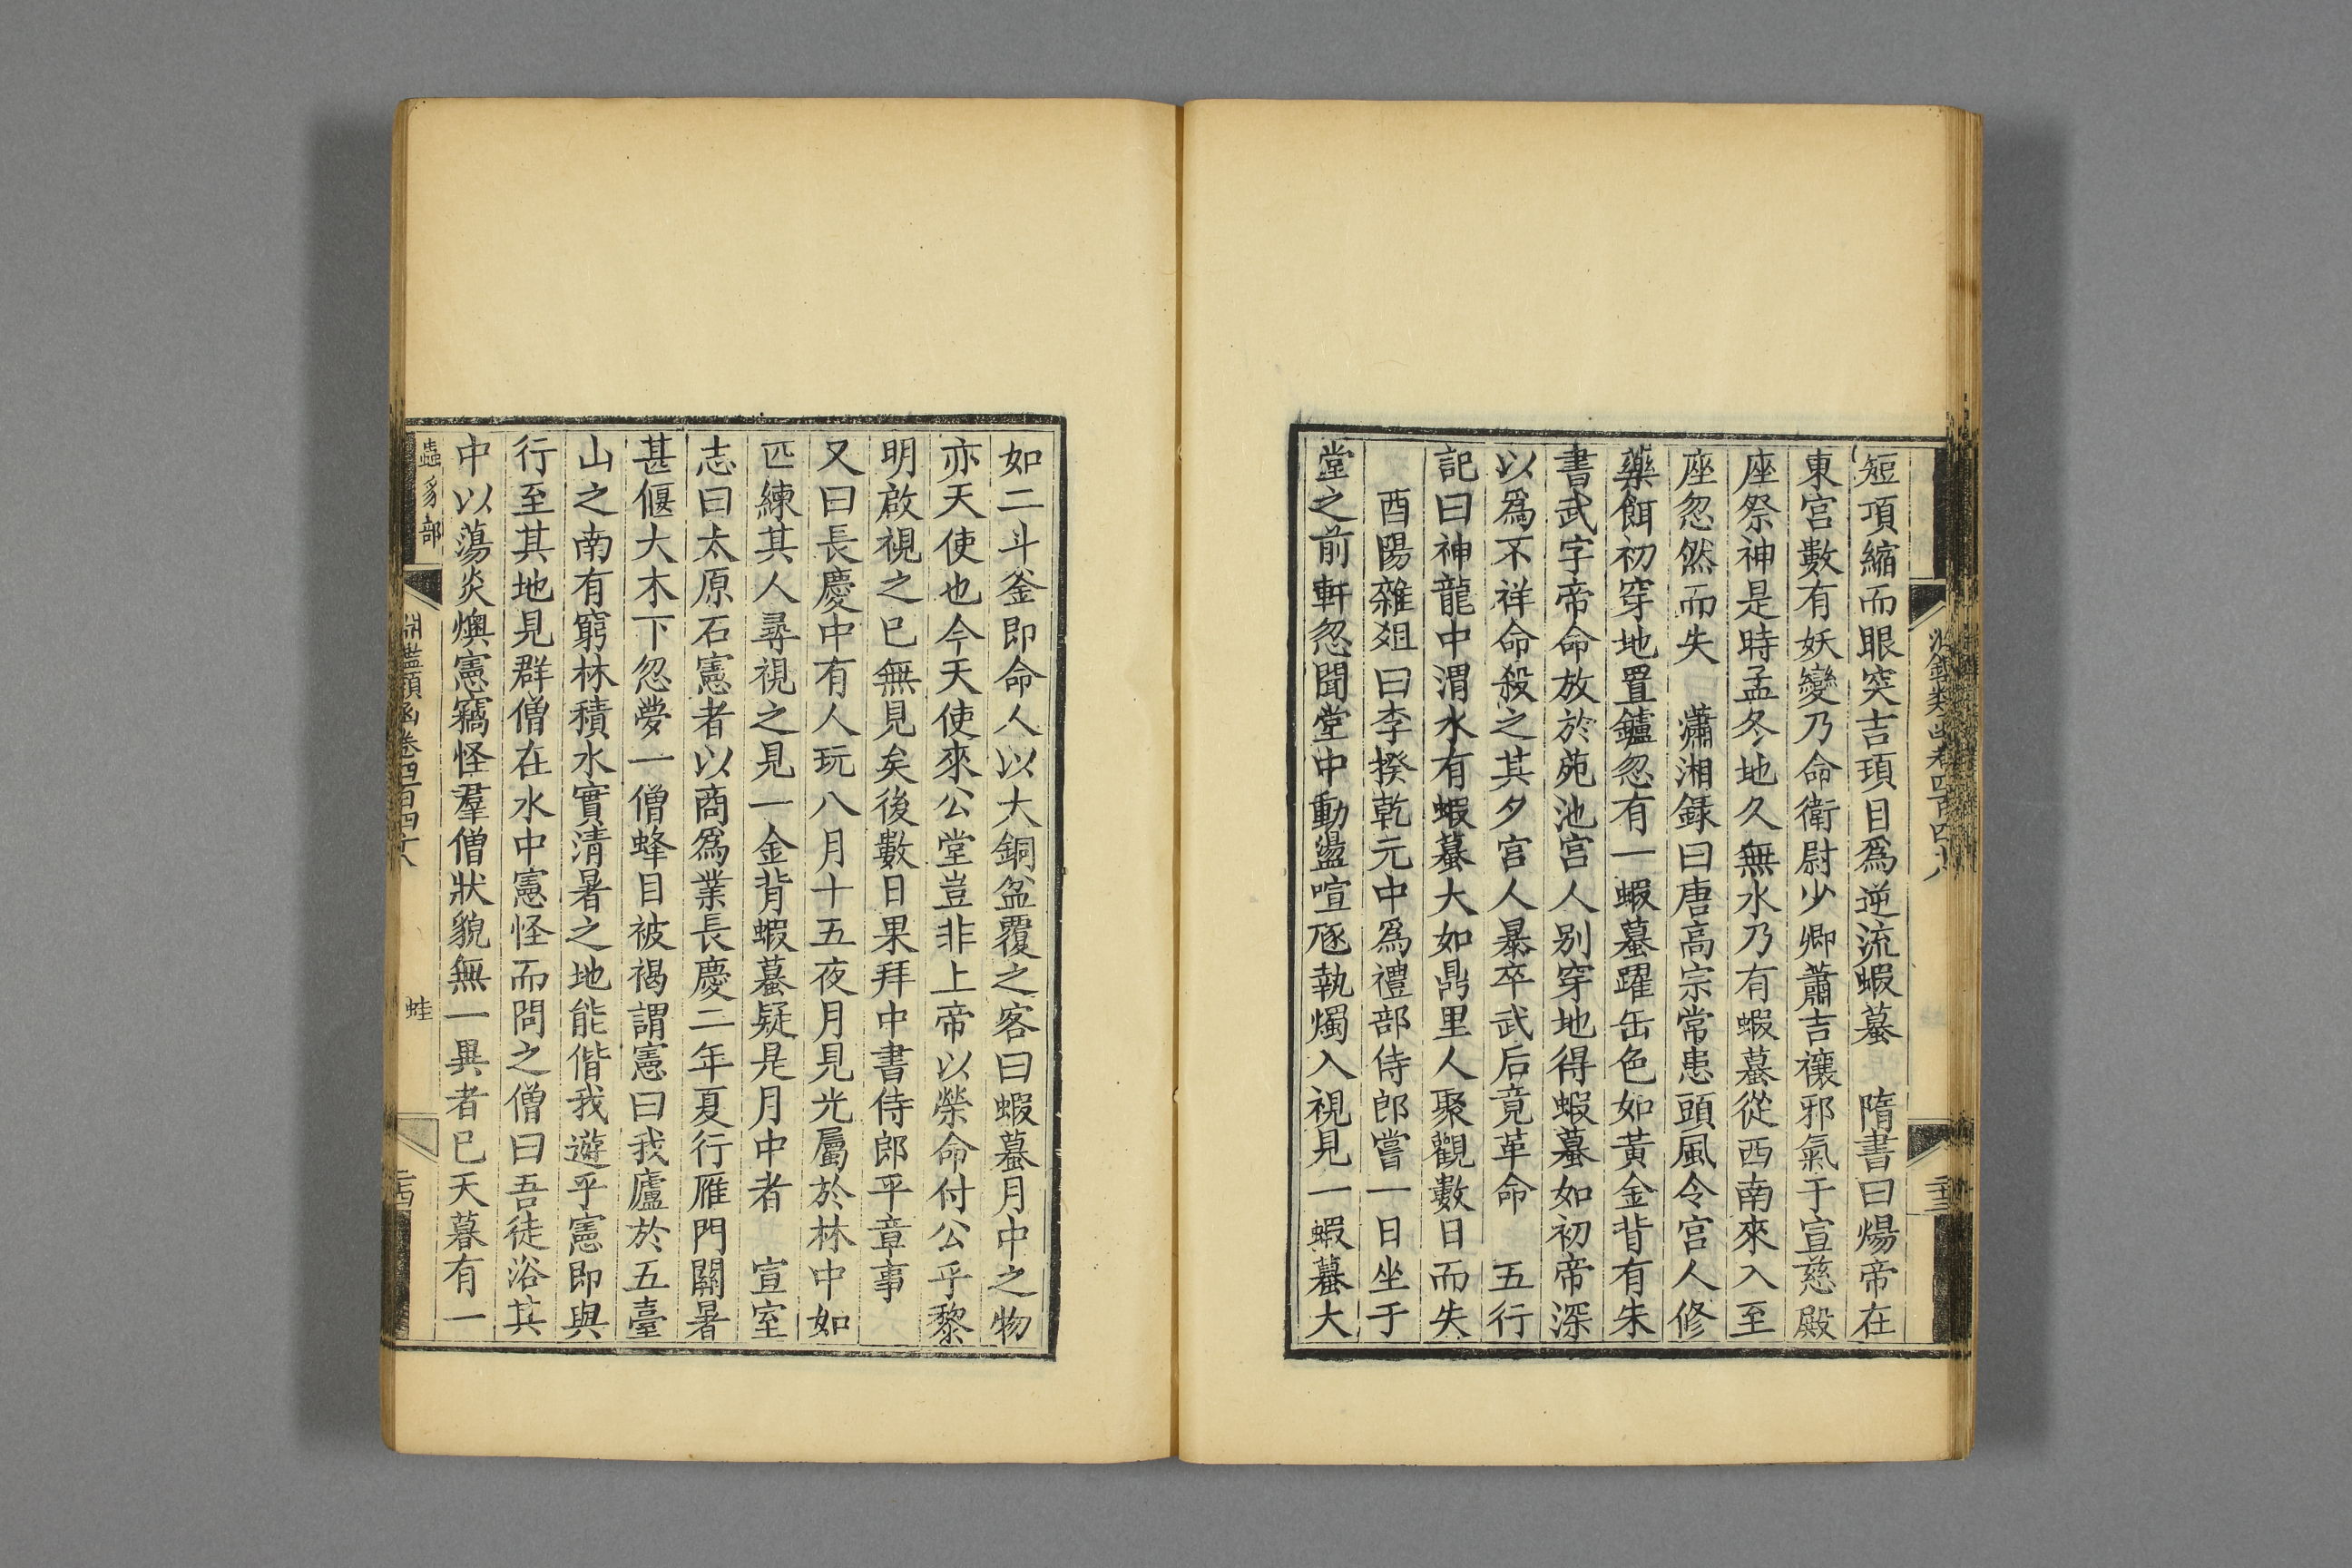 短項縮而眼突吉項目爲逆流蝦蟇　隋書曰煬帝在
東宮數有妖變乃命衛尉少卿蕭吉禳邪氣于宣慈殿
座祭神是時孟冬地久無水乃有蝦蟇從西南來入至
座忽然而失　瀟湘錄曰唐高宗常患頭風令宮人修
藥餌初穿地置鑪忽有一蝦蟇躍缶色如黃金背有朱
書武字帝命放於苑池宮人別穿地得蝦蟇如初帝深
以爲不祥命殺之其夕宮人暴卒武后竟革命　五行
記曰神龍中渭水有蝦蟇大如鼎里人聚觀數日而失
　酉陽雜俎曰李揆乾元中爲禮部侍郎嘗一日坐于
堂之前軒忽聞堂中動盪喧豗執燭入視見一蝦蟇大
如二斗釜即命人以大銅盆覆之客曰蝦蟇月中之物
亦天使也今天使來公堂豈非上帝以榮命付公乎黎
明啟視之已無見矣後數日果拜中書侍郎平章事
又曰長慶中有人玩八月十五夜月見光屬於林中如
匹練其人尋視之見一金背蝦蟇疑是月中者　宣室
志曰太原石憲者以商爲業長慶二年夏行雁門關暑
甚偃大木下忽夢一僧蜂目被褐謂憲曰我廬於五臺
山之南有窮林積水實清暑之地能偕我遊乎憲即與
行至其地見群僧在水中憲怪而問之僧曰吾徒浴其
中以蕩炎燠憲竊怪羣僧狀貌無一異者已天暮有一
蟲豸部
淵鑑類函卷四百四十八
蛙